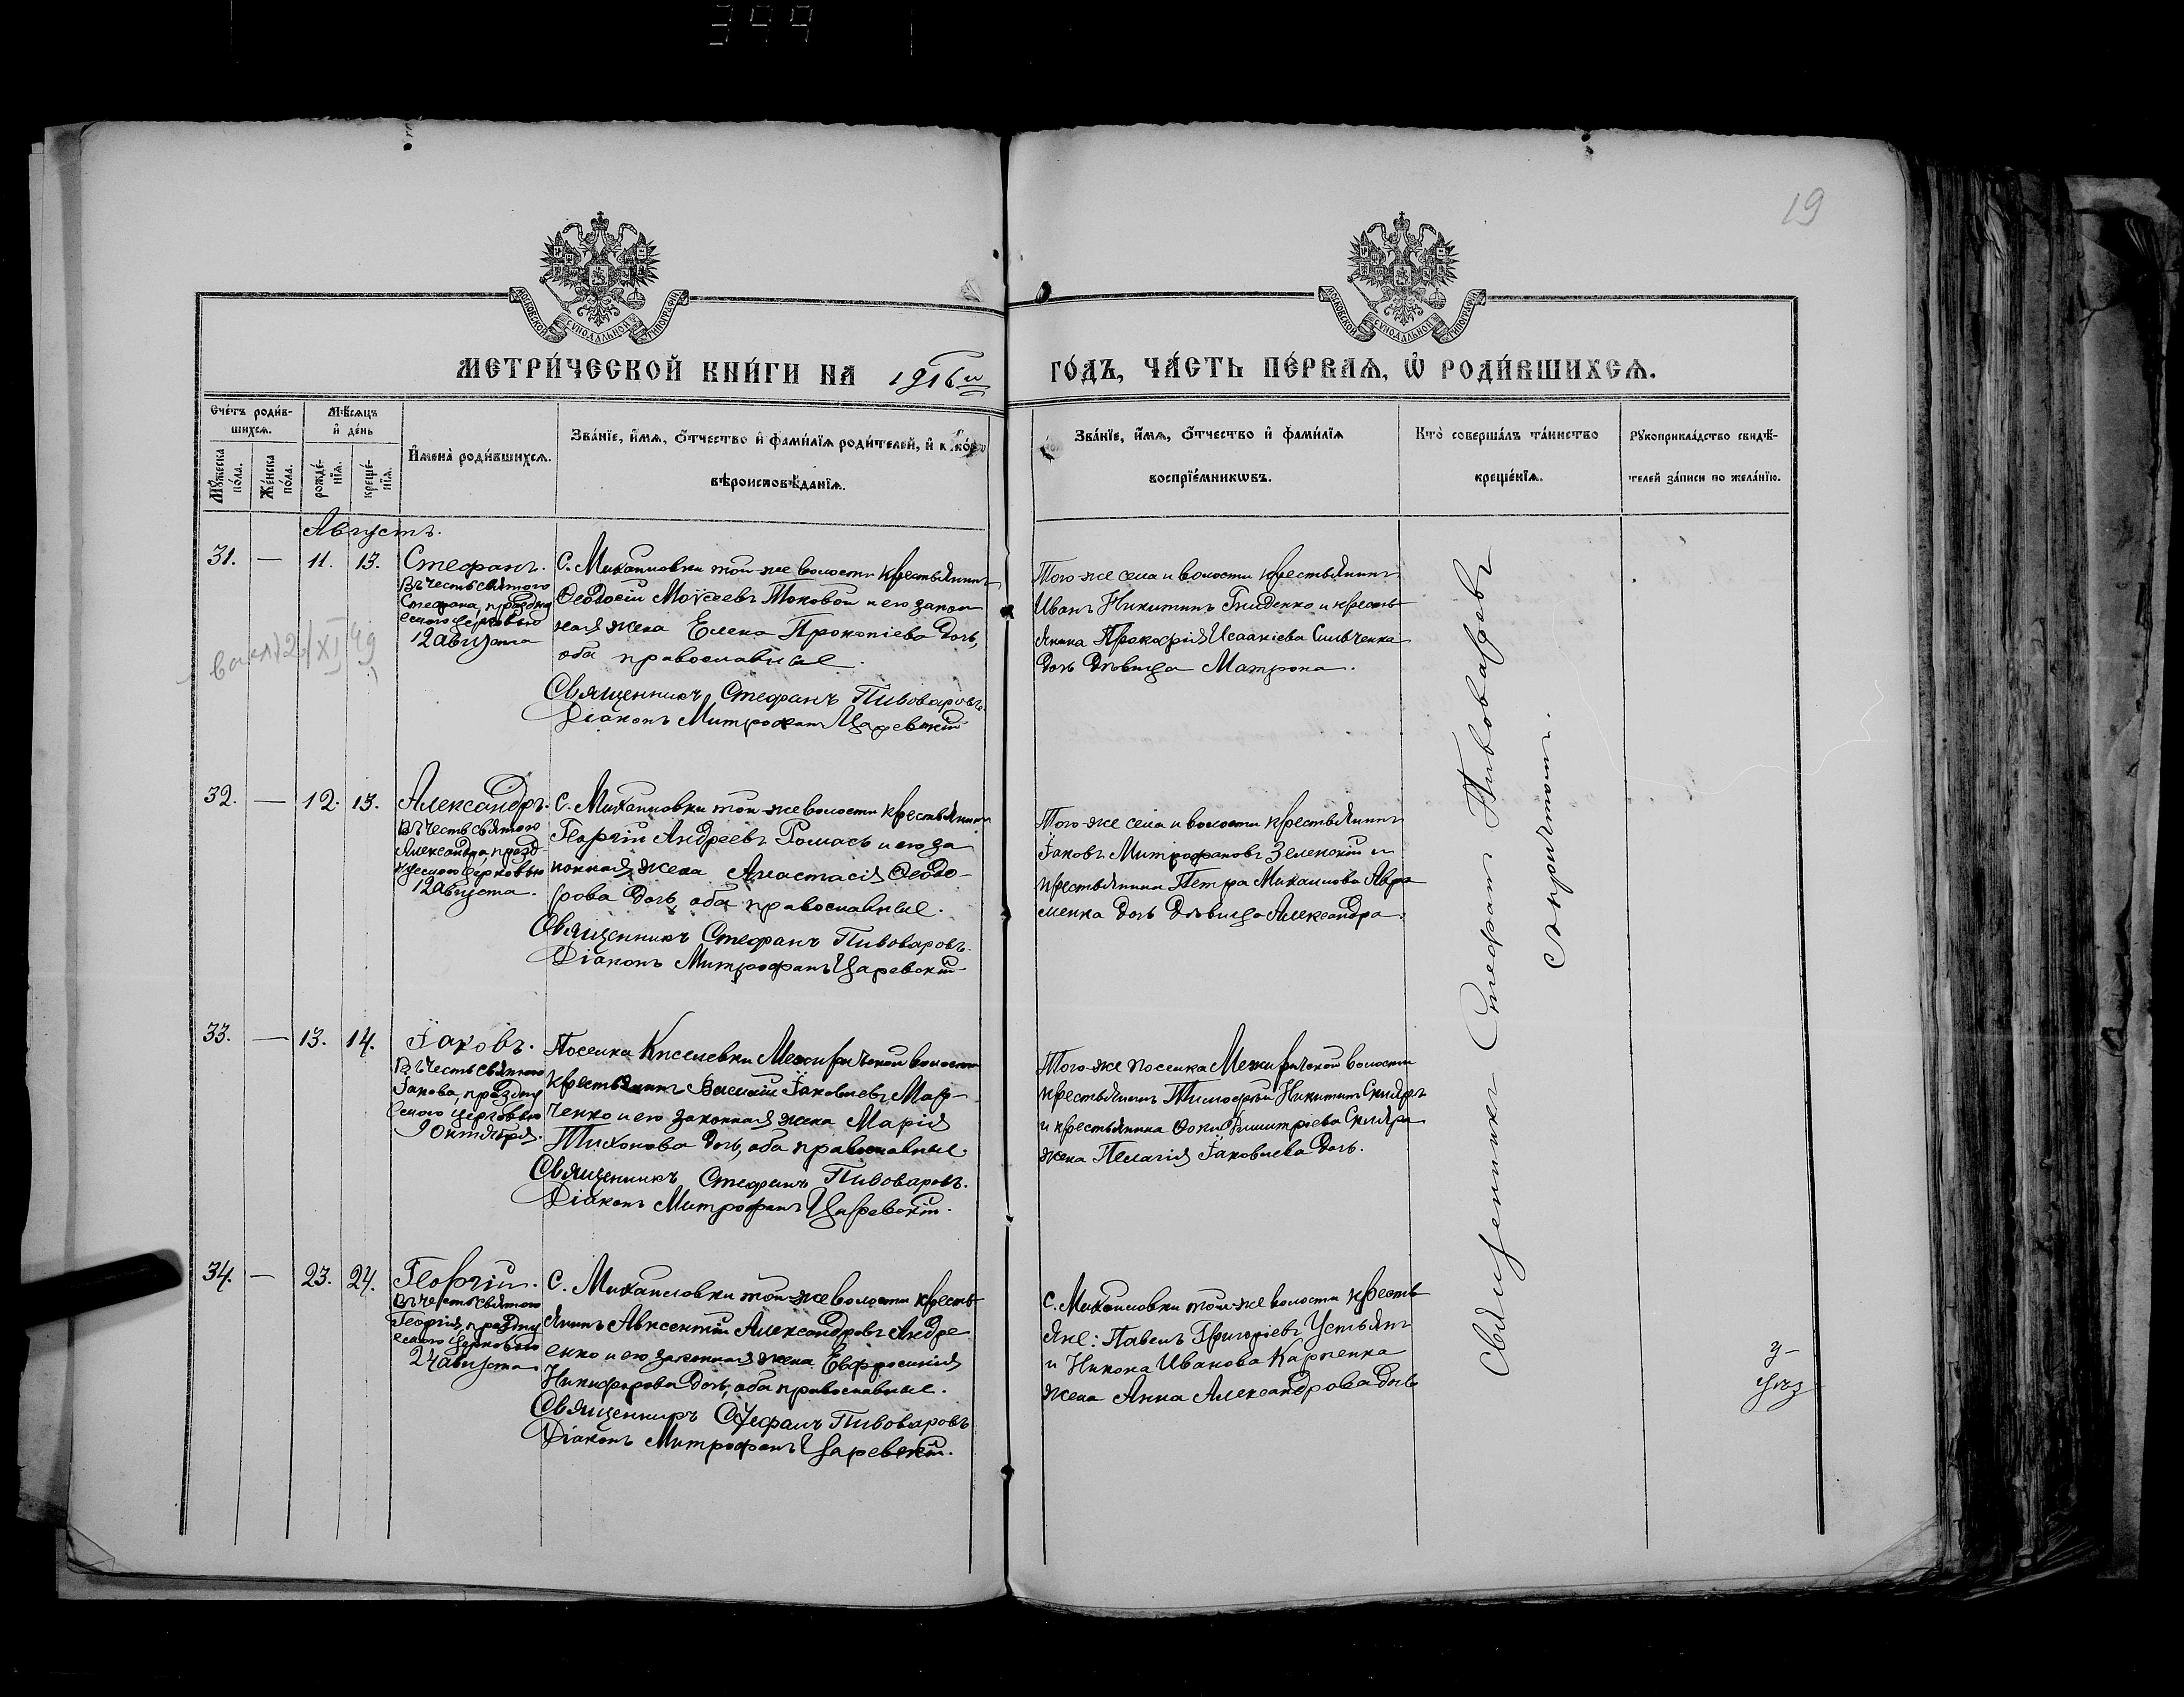 399
19
МОСКОВСКОЙ СѴНОДАЛЬНОЙ ТИПОГРАФІИ
МОСКОВСКОЙ СѴНОДАЛЬНОЙ ТИПОГРАФІИ
МЕТРИ́ЧЕСКОЙ КНИ́ГИ НА 1916й
ГО́ДЪ, ЧА́СТЬ ПЕ́РВАѦ, Ѡ҆ РОДИ́ВШИХСѦ.
Сче́тъ роди́в-
шихсѧ.
Мꙋ́жеска по́ла.
Же́нска по́ла.
Мѣ́сѧцъ
и҆ де́нь
рожде́-
нїѧ.
креще́-
нїѧ.
И҆мена̀ роди́вшихсѧ.
Зва́нїе, и҆́мѧ, ѻ҆́тчество и҆ фами́лїѧ роди́телей, и҆ ко
вѣроисповѣ́данїѧ.
Зва́нїе, и҆́мѧ, ѻ҆́тчество и҆ фами́лїѧ
воспрїе́мникѡвъ.
Кто̀ соверша́лъ та́инство
креще́нїѧ.
Рꙋкоприкла́дство свидѣ́-
телей за́писи по жела́нїю.
Августъ.
31. — 11. 13. Стефанъ.
Въ честь святого
Стефана, праздну
емого церковью
12 августа
XI 49
С. Михаиловки той-же волости крестьянинъ
Ѳеодосій Моѵсеевъ Токовой и его закон
ная жена Елена Прокопіева дочь,
оба православные.
Священникъ Стефанъ Пивоваровъ.
Діаконъ Митрофанъ Царевскій
Того-же села и волости крестьянинъ
Иванъ Никитинъ Гниденко и кресть-
янина Прокофія Исаакіева Сильченка
дочь дѣвица Матрона.
32. — 12. 13. Александръ.
Въ честь святого
Александра, празд
нуемого церковью
12 августа.
С. Михаиловки той-же волости крестьянинъ
Георгій Андреевъ Ромась и его за
конная жена Анастасія Ѳеодо-
рова дочь, оба православные.
Священникъ Стефанъ Пивоваровъ.
Діаконъ Митрофанъ Царевскій
Того-же села и волости крестьянинъ
Іаковъ Митрофановъ Зеленскій и
крестьянина Петра Михаилова Авра
менка дочь дѣвица Александра.
33. — 13. 14. Іаковъ.
Въ честь святого
Іакова, праздну
емого церковью
9 Октября.
Поселка Киселевки Межиричской волости
крестьянинъ Василій Іаковлевъ Мар-
ченко и его законная жена Марія
Тихонова дочь, оба православные.
Священникъ Стефанъ Пивоваровъ.
Діаконъ Митрофанъ Царевскій.
Того-же поселка Межиричской волости
крестьянинъ Тимофей Никитинъ Скляръ
и крестьянина Ѳомы Димитріева Скляра
жена Пелагія Іаковлева дочь.
34. — 23. 24. Георгій.
Въ честь святого
Георгія, праздну
емого церковью
24 августа
С. Михаиловки той-же волости кресть-
янинъ Авксентій Александровъ Андре
енко и его законная жена Евфросинія
Никифорова дочь, оба православные.
Священникъ Стефанъ Пивоваровъ
Діаконъ Митрофанъ Царевскій.
С. Михаиловки той-же волости кресть
яне: Павелъ Григоріевъ Устьянъ
и Никона Иванова Карпенка
жена Анна Александрова дочь
Священникъ Стефанъ Пивоваровъ
съ причтомъ.